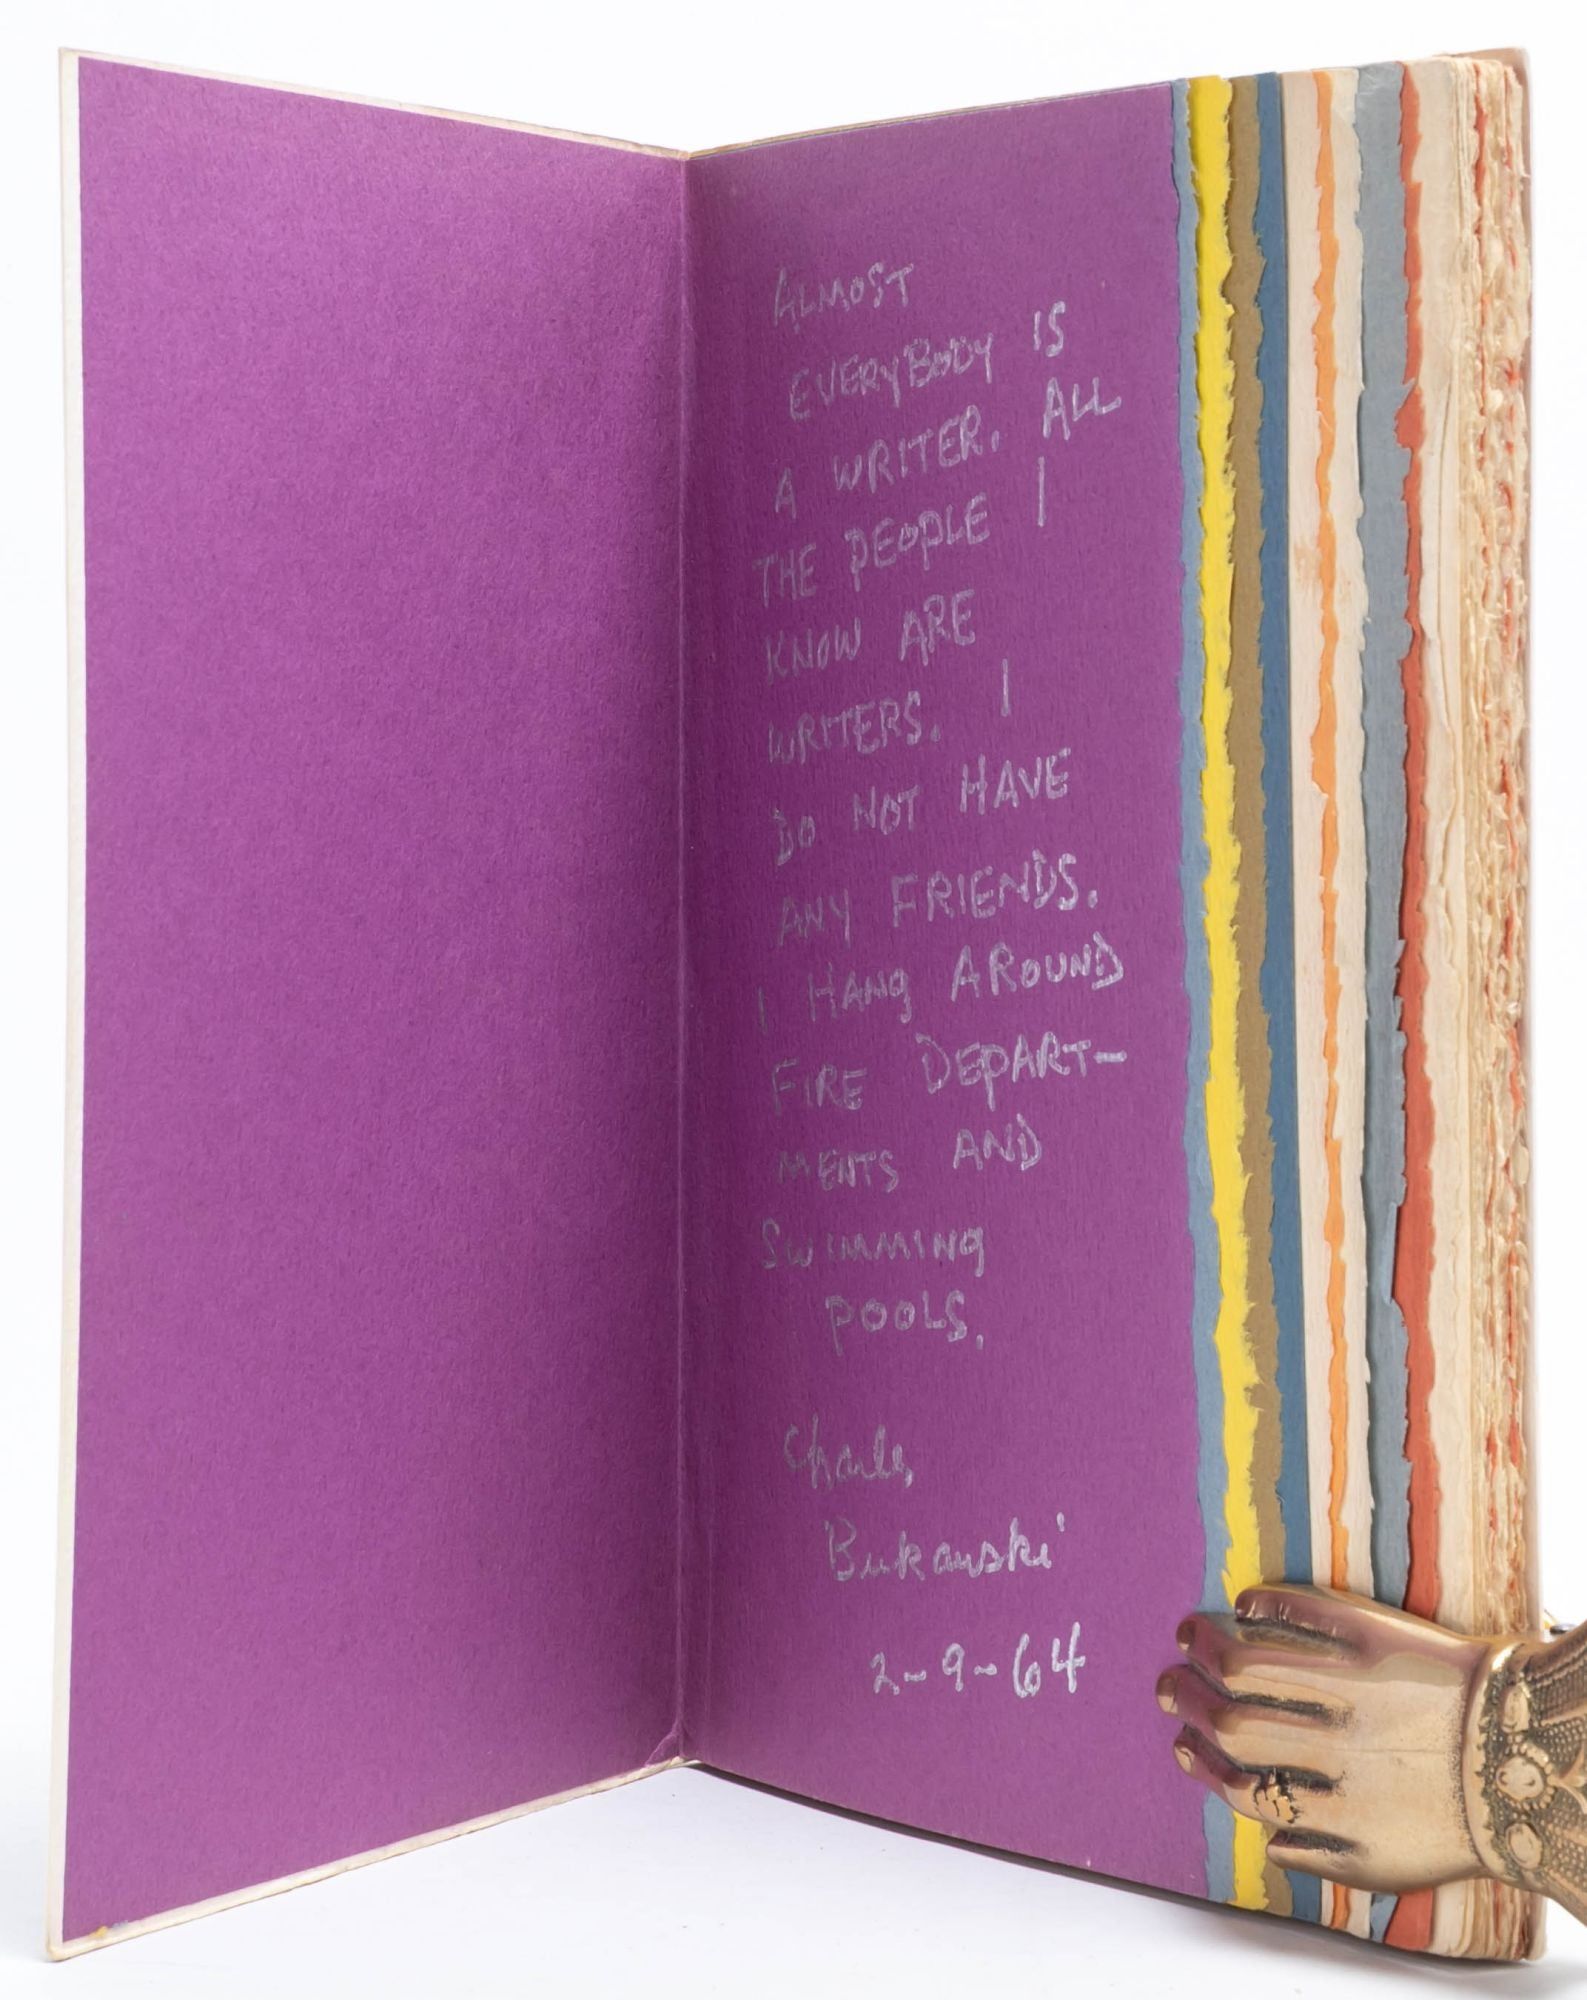 ALMOST
EVERYBODY IS
A WRITER. ALL
THE PEOPLE I
KNOW ARE
WRITERS. I
DO NOT HAVE
ANY FRIENDS.
I HANG AROUND
FIRE DEPART-
MENTS AND
SWIMMING
POOLS.
Charles
Bukowski
2-9-64